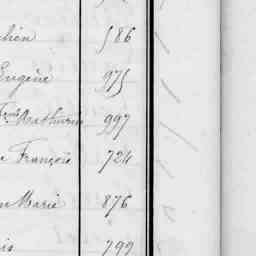 lien 586
Eugène 975
Fçois Mathurin 997
François 724
Marie 876
is 799